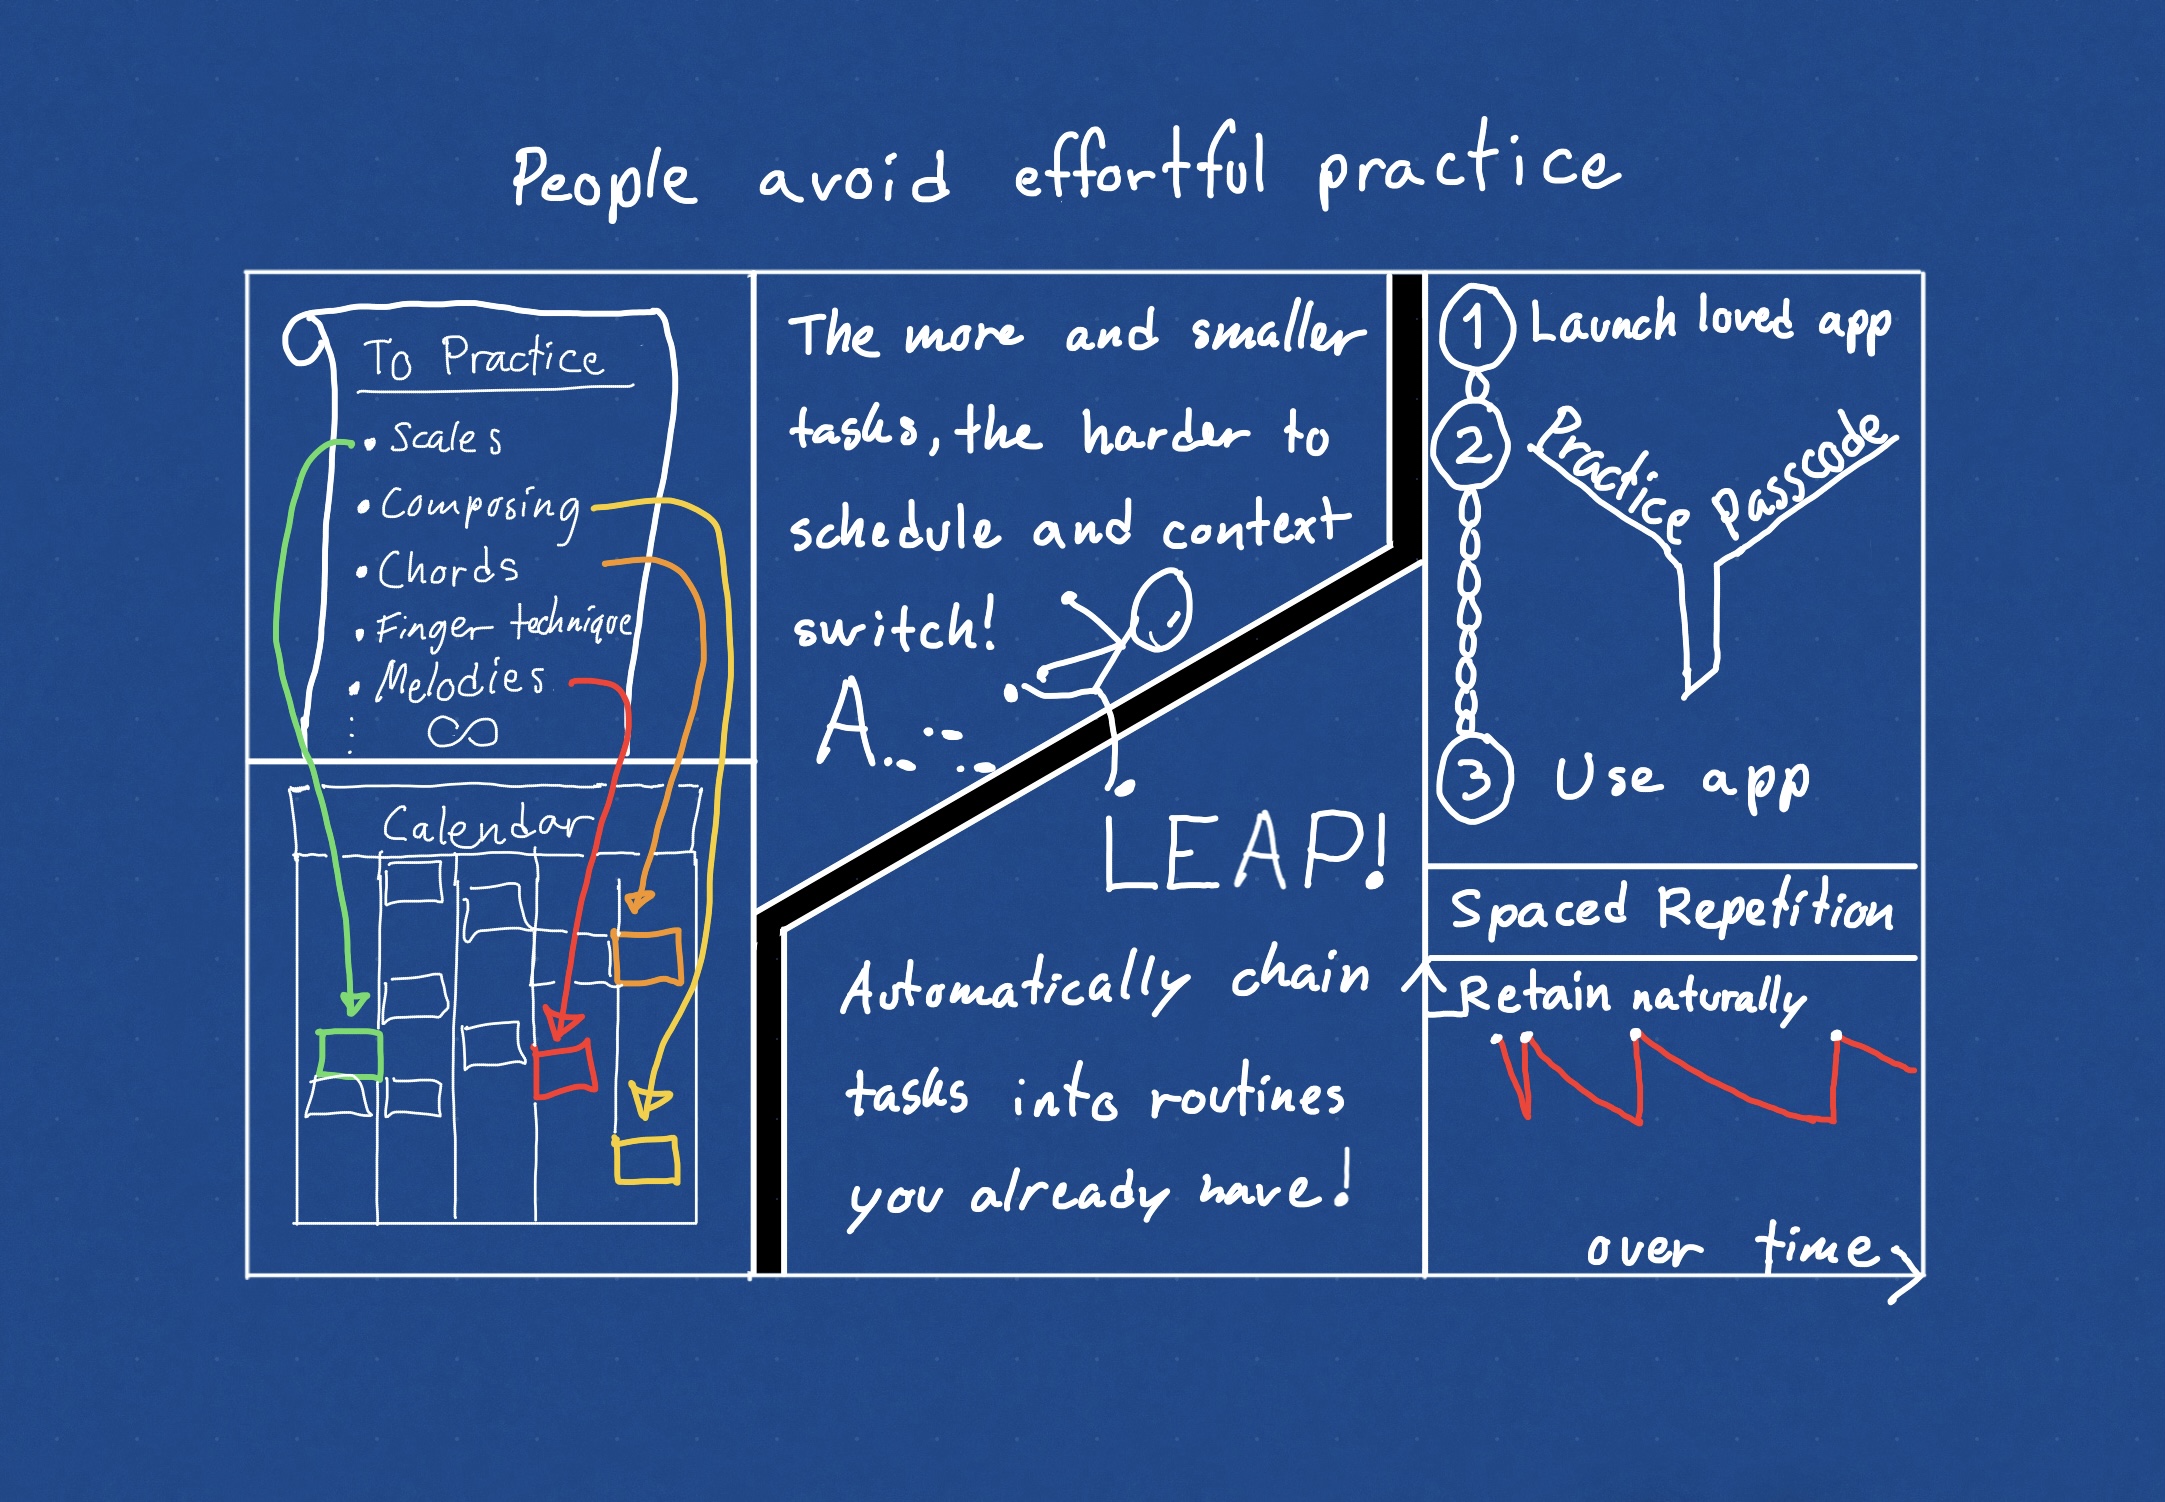 People avoid effortful practice
To Practice
• Scales
• Composing
• Chords
• Finger technique
• Melodies
∞
Calendar
The more and smaller
tasks, the harder to
schedule and context
switch!
A...
LEAP!
Automatically chain
tasks into routines
you already have!
1 Launch loved app
2 Practice Passcode
3 Use app
Spaced Repetition
Retain naturally
over time